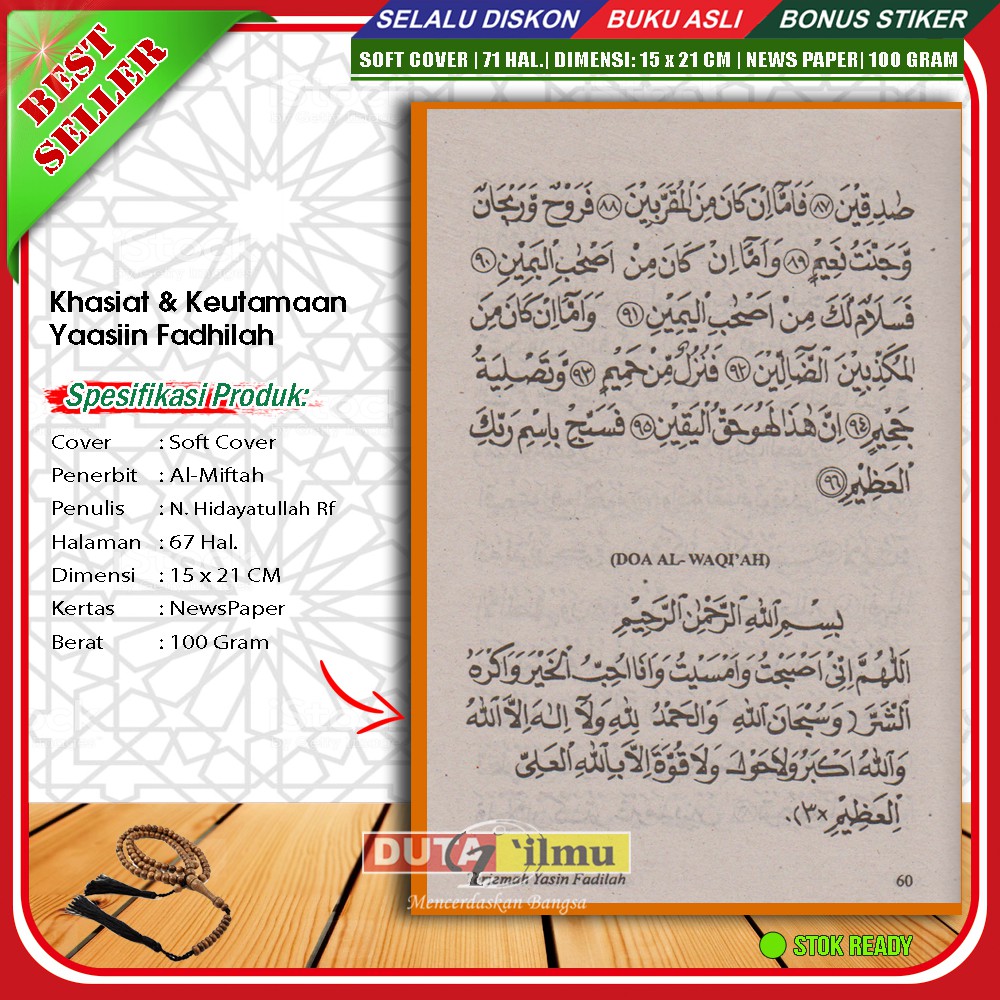 BEST
SELLER
SELALU DISKON
BUKU ASLI
BONUS STIKER
SOFT COVER | 71 HAL.| DIMENSI: 15 x 21 CM | NEWS PAPER| 100 GRAM
Khasiat & Keutamaan
Yaasiin Fadhilah
Spesifikasi Produk:
Cover : Soft Cover
Penerbit : Al-Miftah
Penulis : N. Hidayatullah Rf
Halaman : 67 Hal.
Dimensi : 15 x 21 CM
Kertas : NewsPaper
Berat : 100 Gram
صٰدِقِيْنَ ٨٧ فَاَمَّآ اِنْ كَانَ مِنَ الْمُقَرَّبِيْنَ ٨٨ فَرَوْحٌ وَّرَيْحَانٌ
وَّجَنَّتُ نَعِيْمٍ ٨٩ وَاَمَّآ اِنْ كَانَ مِنْ اَصْحٰبِ الْيَمِيْنِ ٩٠
فَسَلَامٌ لَّكَ مِنْ اَصْحٰبِ الْيَمِيْنِ ٩١ وَاَمَّآ اِنْ كَانَ مِنَ
الْمُكَذِّبِيْنَ الضَّآلِّيْنَ ٩٢ فَنُزُلٌ مِّنْ حَمِيْمٍ ٩٣ وَّتَصْلِيَةُ
جَحِيْمٍ ٩٤ اِنَّ هٰذَا لَهُوَ حَقُّ الْيَقِيْنِ ٩٥ فَسَبِّحْ بِاسْمِ رَبِّكَ
الْعَظِيْمِ ٩٦
(DOA AL- WAQI'AH)
بِسْمِ اللهِ الرَّحْمٰنِ الرَّحِيْمِ
اَللّٰهُمَّ اِنِّى اَصْبَحْتُ وَاَمْسَيْتُ وَاَنَا اُحِبُّ الْخَيْرَ وَاَكْرَهُ
الشَّرَّ (وَسُبْحَانَ اللهِ وَالْحَمْدُ لِلّٰهِ وَلَا اِلٰهَ اِلَّا اللهُ
وَاللهُ اَكْبَرُ وَلَا حَوْلَ وَلَا قُوَّةَ اِلَّا بِاللهِ الْعَلِيِّ
الْعَظِيْمِ ×٣).
DUTA 'ilmu
Terjemah Yasin Fadilah
Mencerdaskan Bangsa
60
STOK READY